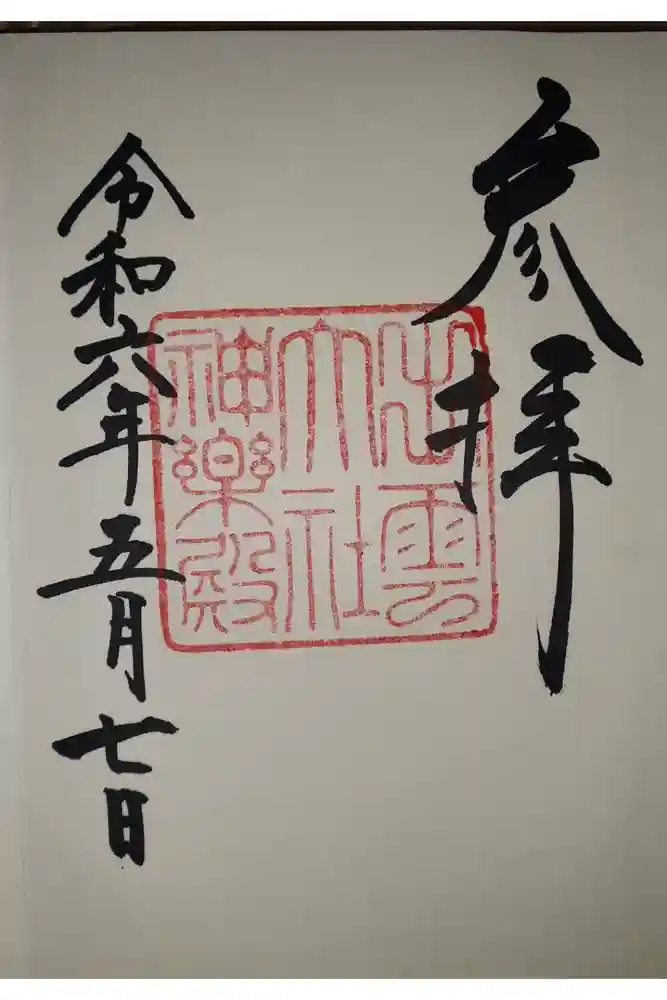 参拝
出雲
大社
神楽殿
令和六年五月七日